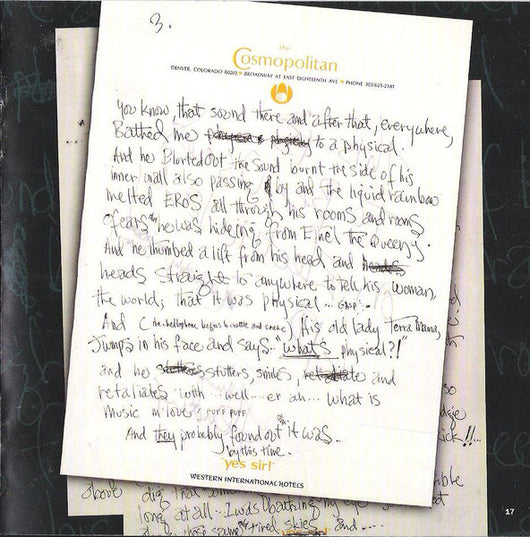 3.
the
Cosmopolitan
DENVER, COLORADO 80202 • BROADWAY AT EAST EIGHTEENTH AVE. • PHONE 303/623-2181
You know, that sound there and after that, everywhere,
Bathed me to a physical.
And he Blurted out the sound burnt the side of his
inner wall also passing by and the liquid rainbow
melted EROS all through his rooms and rooms
of ears he was hideing from Finel the Queezy.
And he thumbed a lift from his head and heads
heads straight to anywhere to tell his woman,
the world, that it was physical... GASP..
And (the begins to rattle and ) His old lady Terra Mama,
Jumps in his face and says "what's physical?!"
and he stutters stutters, smiles, retaliate and
retaliates with .. well... er ah... what is
Music m'love? PUFF PUFF
And they probably found out it was..
by this time.
yes sir!
WESTERN INTERNATIONAL HOTELS
so
kick!!..
above dig that
long at all... I was bathing my eye
same tired skies and....
17